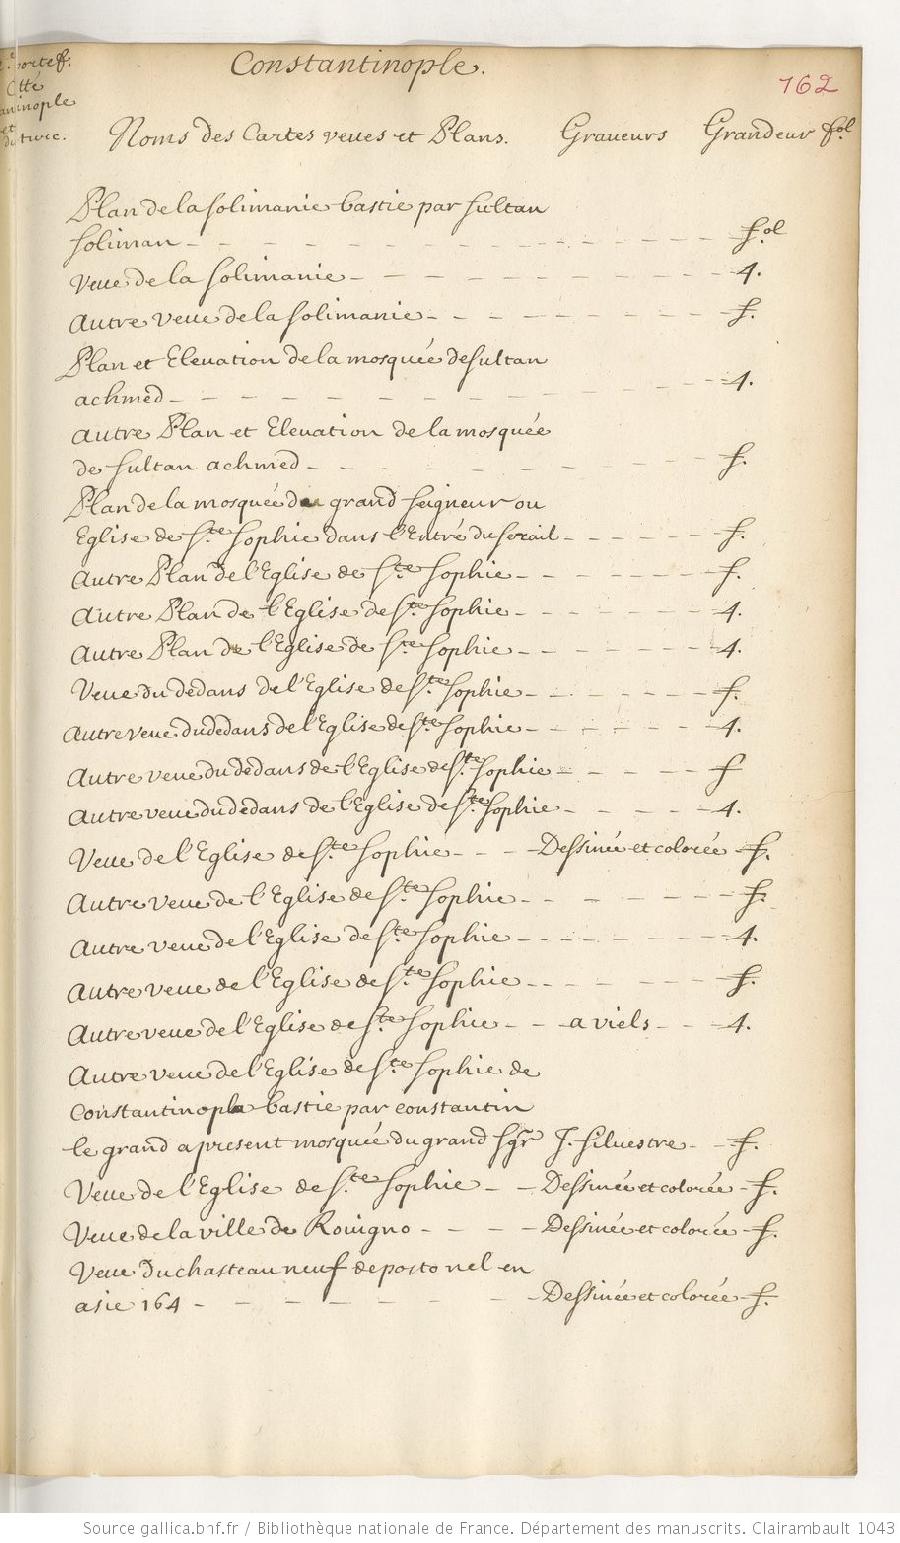 Constantinople.
162
portef.
Ctté
aninople
et
turc.
Noms des Cartes veues et Plans. Graveurs Grandeur fol
Plan de la Solimanie bastie par Sultan
Soliman - - - f.ol
Veue de la Solimanie - - - 4.
Autre veue de la Solimanie - - - f.
Plan et Elevation de la mosquée de Sultan
achmed - - - 4.
autre Plan et Elevation de la mosquée
de Sultan achmed - - - f.
Plan de la mosquée du grand Seigneur ou
Eglise de Ste Sophie dans l'Entré du Serail - - - f.
Autre Plan de l'Eglise de Ste Sophie - - - f.
Autre Plan de l'Eglise de Ste Sophie - - - 4.
Autre Plan de l'Eglise de Ste Sophie - - - 4.
Veue du dedans de l'Eglise de Ste Sophie - - - f.
Autre veue du dedans de l'Eglise de Ste Sophie - - - 4.
Autre veue du dedans de l'Eglise de Ste Sophie - - - f
Autre veue du dedans de l'Eglise de Ste Sophie - - - 4.
Veue de l'Eglise de Ste Sophie - - - Dessinée et colorée - f.
Autre veue de l'Eglise de Ste Sophie - - - f.
Autre veue de l'Eglise de Ste Sophie - - - 4.
Autre veue de l'Eglise de Ste Sophie - - - f.
Autre veue de l'Eglise de Ste Sophie - - a viels - - 4.
Autre veue de l'Eglise de Ste Sophie de
Constantinople bastie par constantin
le grand a present mosquée du grand Sgr J. Silvestre - - f.
Veue de l'Eglise de Ste Sophie - - Dessinée et colorée - f.
Veue de la ville de Rovigno - - - Dessinée et colorée - f.
Veue du chasteau neuf de porto nel en
asie 164 - - - Dessinée et colorée - f.
Source gallica.bnf.fr / Bibliothèque nationale de France. Département des manuscrits. Clairambault 1043